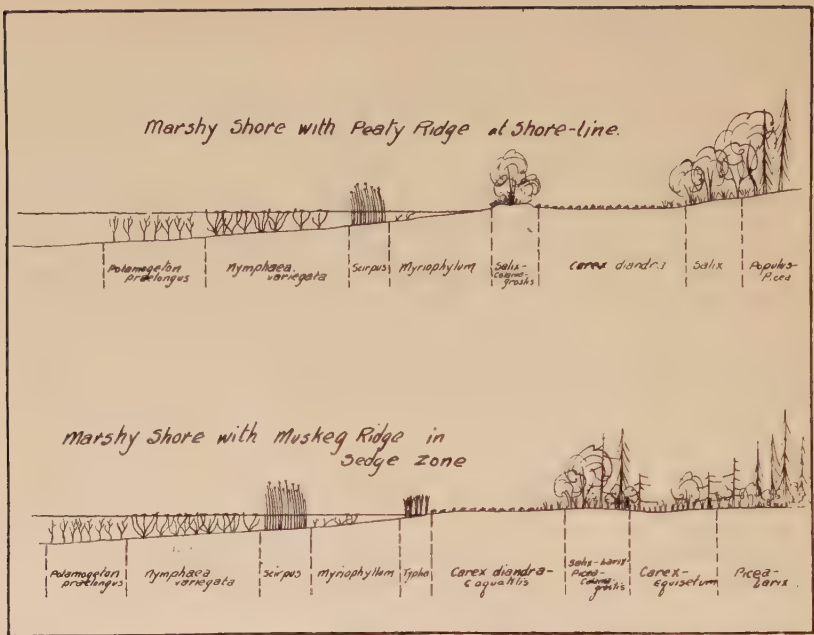 Marshy Shore with Peaty Ridge at Shore-line.
Potamogeton
praelongus
Nymphaea
variegata
Scirpus
Myriophylum
Salix-
Calama-
grostis
Carex diandra
Salix
Populus-
Picea
Marshy Shore with Muskeg Ridge in
Sedge Zone
Potamogeton
praelongus
Nymphaea
variegata
Scirpus
Myriophyllum
Typha
Carex diandra-
C aquatilis
Salix-Larix-
Picea-
Calama-
grostis
Carex-
Equisetum
Picea-
Larix